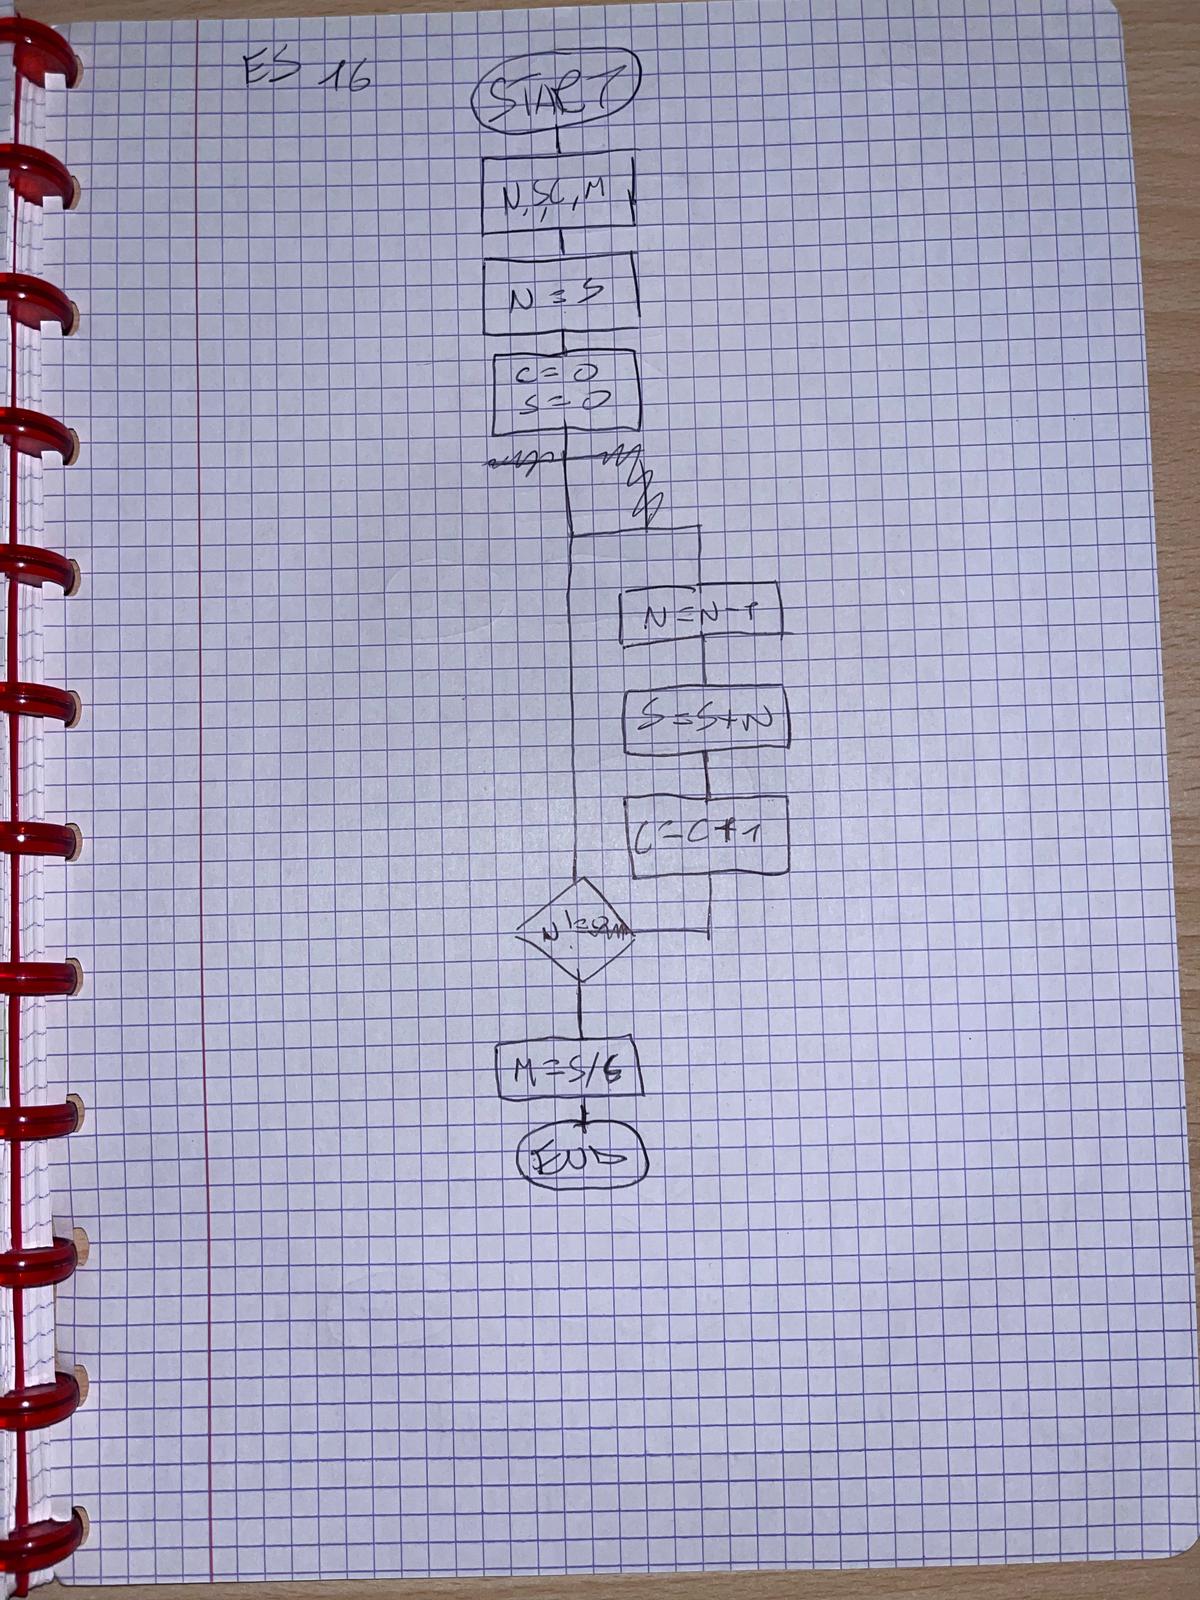 ES 16
START
N,S,C,M
N = 5
C = 0
S = 0
N = N-1
S = S+N
C = C+1
N != 0
M = S/C
END